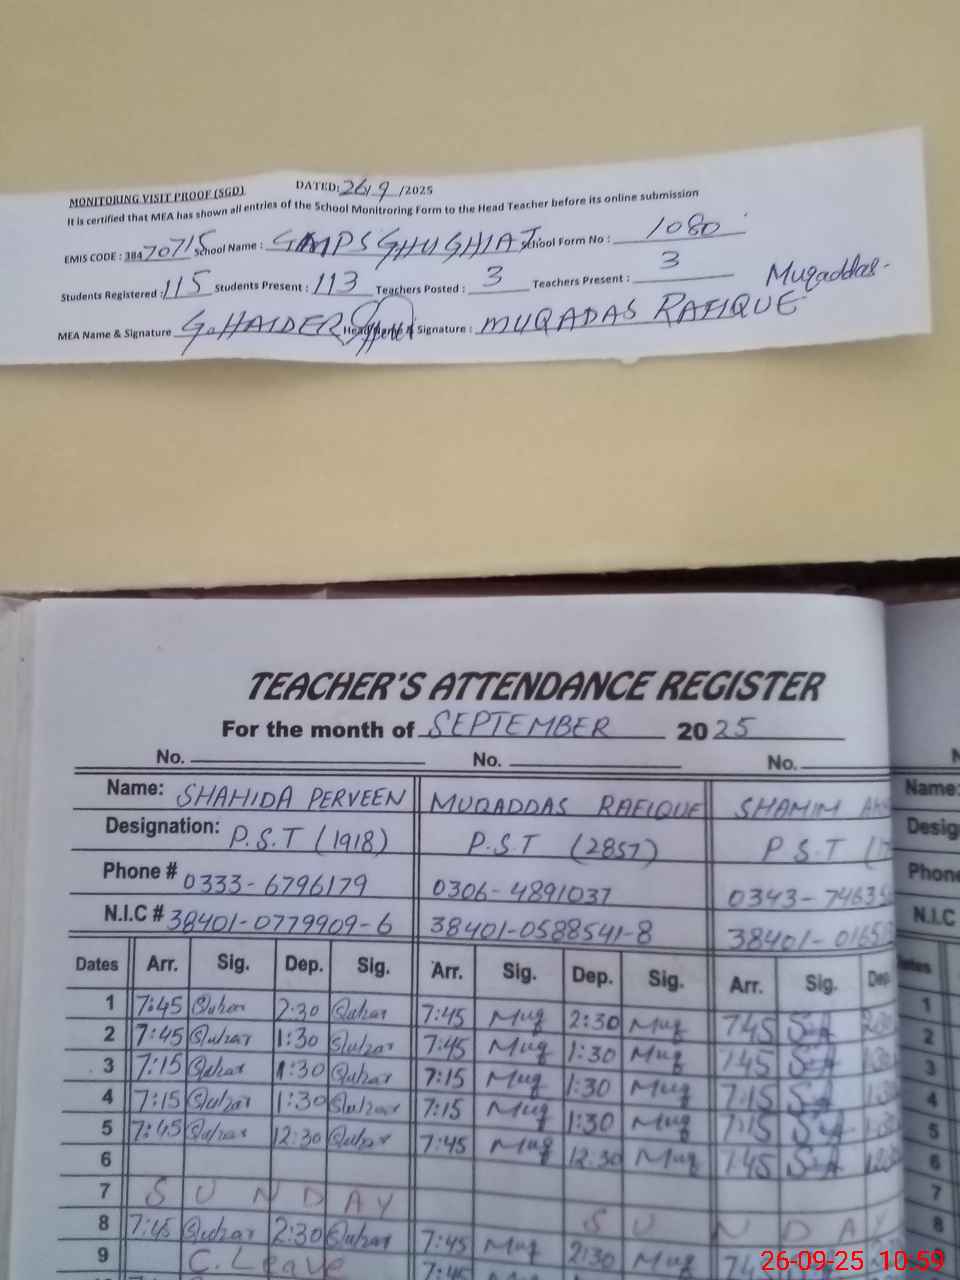 MONITORING VISIT PROOF (SGD) DATED: 26/9/2025
It is certified that MEA has shown all entries of the School Monitroring Form to the Head Teacher before its online submission
EMIS CODE : 38470715 School Name : GMPS GHUGHIAT School Form No : 1080
Students Registered : 115 Students Present : 113 Teachers Posted : 3 Teachers Present : 3 Muqaddas
MEA Name & Signature G. HAIDER Signature : MUQADAS RAFIQUE
TEACHER'S ATTENDANCE REGISTER
For the month of SEPTEMBER 2025
No. No. No. N
Name: SHAHIDA PERVEEN MUQADDAS RAFIQUE SHAMIM Name:
Designation: P.S.T (1918) P.S.T (2857) P S T Desig
Phone # 0333-6796179 0306-4891037 0343-7463 Phone
N.I.C # 38401-0779909-6 38401-0588541-8 38401- N.I.C
Dates Arr. Sig. Dep. Sig. Arr. Sig. Dep. Sig. Arr. Sig. Dep
1 7:45 2:30 7:45 Muq 2:30 Muq 745 SA 1
2 7:45 1:30 7:45 Muq 1:30 Muq 745 SA 2
3 7:15 1:30 7:15 Muq 1:30 Muq 7:15 SA 3
4 7:15 1:30 7:15 Muq 1:30 Muq 7:15 SA 4
5 7:45 12:30 7:45 Muq 12:30 Muq 7:45 SA 5
6 6
7 S U N D A Y S U N D A Y 7
8 7:45 2:30 7:45 Muq 2:30 Muq 8
9 C. Leave 7:45
26-09-25 10:59